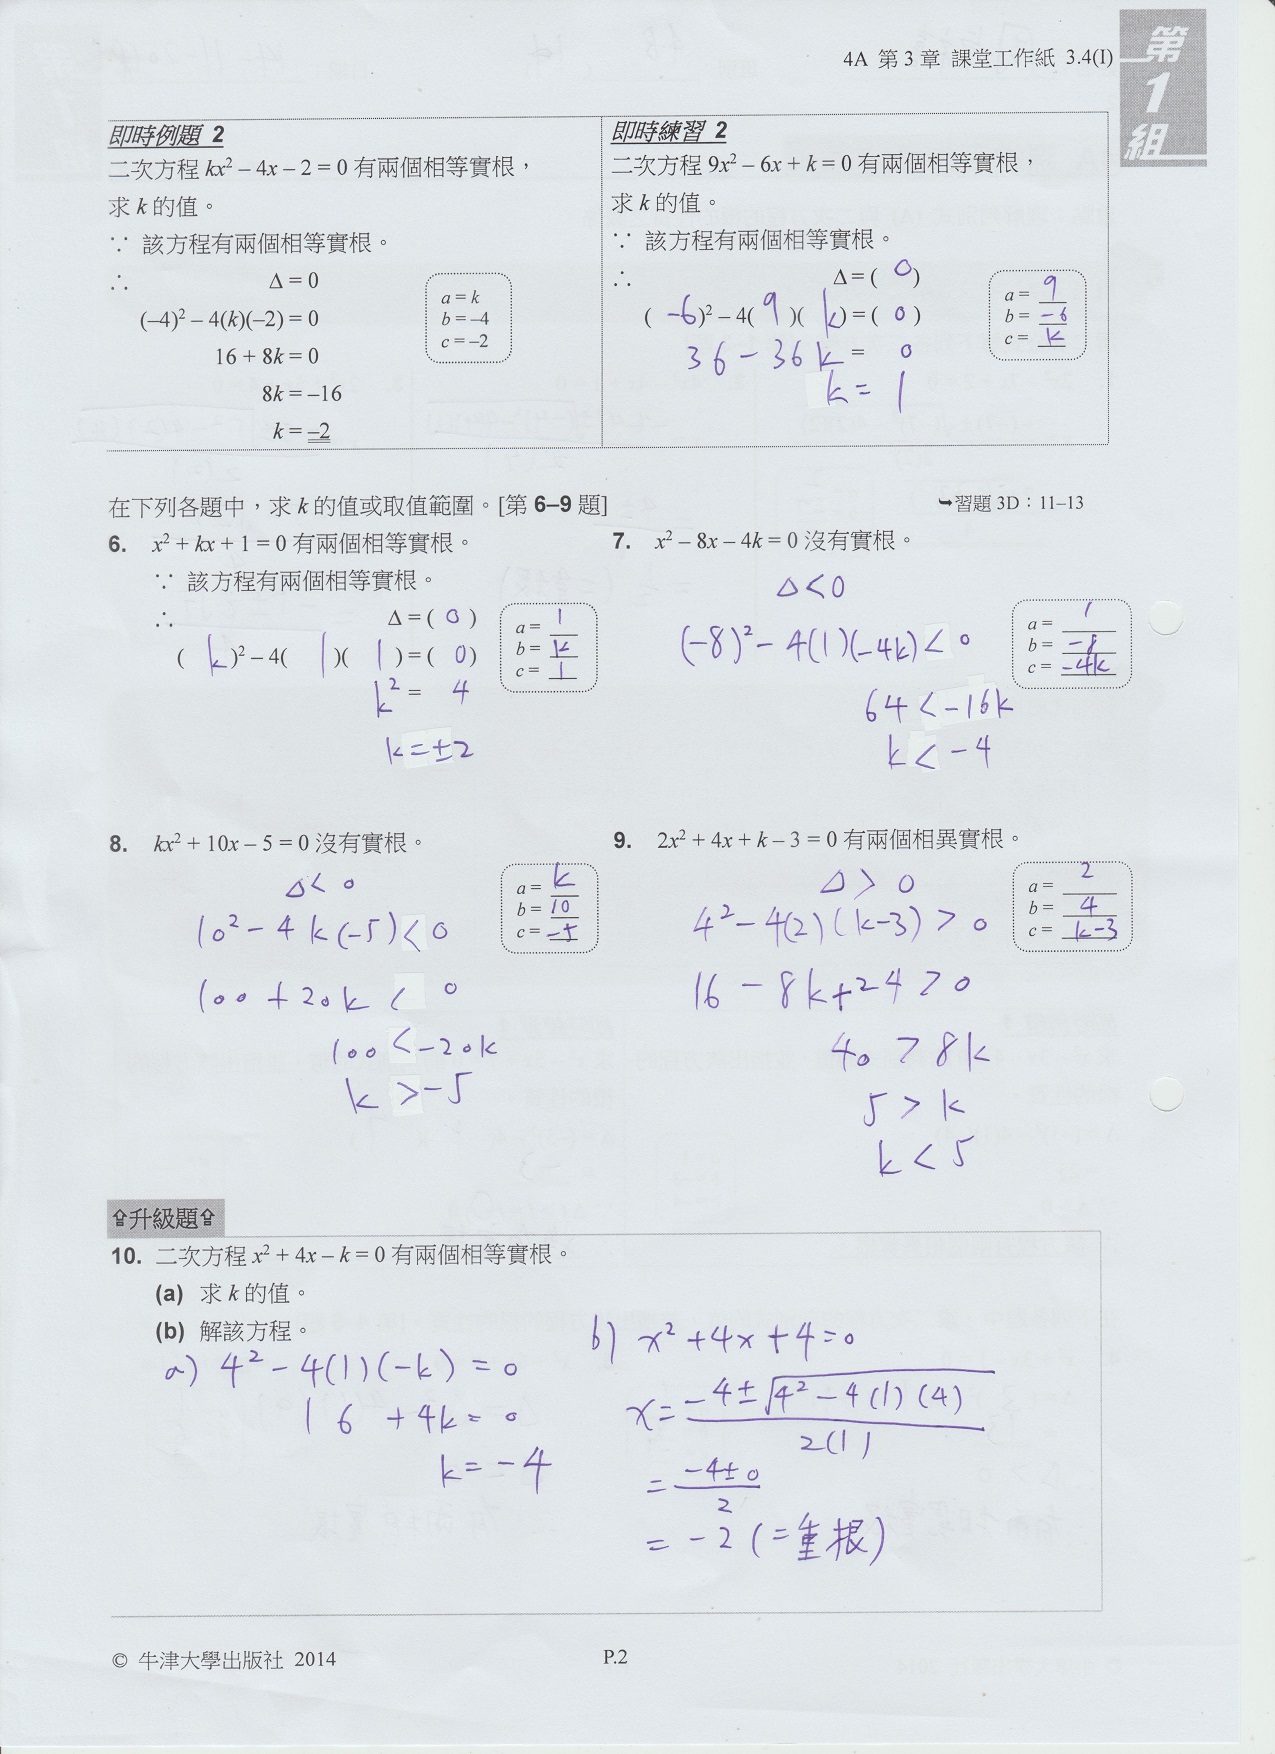 4A 第 3 章 課堂工作紙 3.4(I)
第
1
組
即時例題 2
二次方程 kx² – 4x – 2 = 0 有兩個相等實根，
求 k 的值。
∵ 該方程有兩個相等實根。
∴ Δ = 0
(–4)² – 4(k)(–2) = 0
16 + 8k = 0
8k = –16
k = –2
a = k
b = –4
c = –2
即時練習 2
二次方程 9x² – 6x + k = 0 有兩個相等實根，
求 k 的值。
∵ 該方程有兩個相等實根。
∴ Δ = ( 0 )
( -6 )² – 4( 9 )( k ) = ( 0 )
36 - 36k = 0
k = 1
a = 9
b = -6
c = k
在下列各題中，求 k 的值或取值範圍。[第 6–9 題]
➥習題 3D：11–13
6. x² + kx + 1 = 0 有兩個相等實根。
∵ 該方程有兩個相等實根。
∴ Δ = ( 0 )
( k )² – 4( 1 )( 1 ) = ( 0 )
k² = 4
k = ±2
a = 1
b = k
c = 1
7. x² – 8x – 4k = 0 沒有實根。
Δ < 0
(-8)² - 4(1)(-4k) < 0
64 < -16k
k < -4
a = 1
b = -8
c = -4k
8. kx² + 10x – 5 = 0 沒有實根。
Δ < 0
10² - 4k(-5) < 0
100 + 20k < 0
100 < -20k
k > -5
a = k
b = 10
c = -5
9. 2x² + 4x + k – 3 = 0 有兩個相異實根。
Δ > 0
4² - 4(2)(k-3) > 0
16 - 8k + 24 > 0
40 > 8k
5 > k
k < 5
a = 2
b = 4
c = k-3
⇧升級題⇧
10. 二次方程 x² + 4x – k = 0 有兩個相等實根。
(a) 求 k 的值。
(b) 解該方程。
a) 4² - 4(1)(-k) = 0
16 + 4k = 0
k = -4
b) x² + 4x + 4 = 0
x = (-4 ± √(4² - 4(1)(4))) / 2(1)
= (-4 ± 0) / 2
= -2 (二重根)
© 牛津大學出版社 2014
P.2